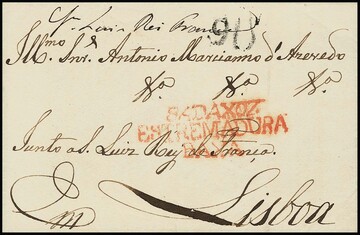 S. Luiz Rei França
90
Il.mo Snr. Antonio Marcianno d'Azevedo
&a. &a. &a.
BADAXOZ.
ESTREMADURA
BAXA
Junto a S. Luiz Rey de França.
Em Lisboa